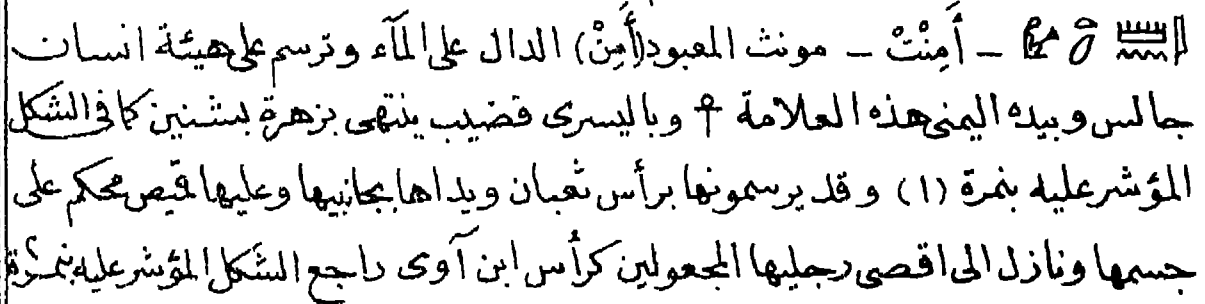 𓇋𓏠𓈖𓏏 𓆇 𓁐 – أَمِنْتْ – مونث المعبود (أَمِنْ) الدال على المآء وترسم على هيئة انسان
جالس وبيده اليمنى هذه العلامة ☥ وباليسرى قضيب ينتهى بزهرة بشنين كما فى الشكل
المؤشر عليه بنمرة (١) وقد يرسمونها برأس ثعبان ويداها بجانبيها وعليها قميص محكم على
جسمها ونازل الى اقصى رجليها المجعولين كرأس ابن آوى راجع الشكل المؤشر عليه بنمرة